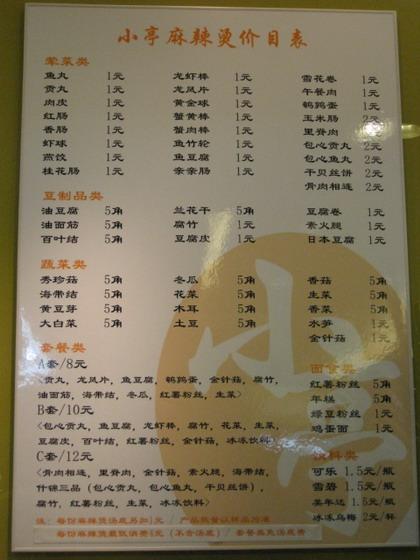 小亭麻辣烫价目表
荤菜类
鱼丸 1元 龙虾棒 1元 雪花卷 1元
贡丸 1元 龙凤片 1元 午餐肉 1元
肉皮 1元 黄金球 1元 鹌鹑蛋 1元
红肠 1元 蟹黄棒 1元 玉米肠 2元
香肠 1元 蟹肉棒 1元 里脊肉 2元
虾球 1元 鱼竹轮 1元 包心贡丸 2元
燕饺 1元 鱼豆腐 1元 包心鱼丸 2元
桂花肠 1元 亲亲肠 1元 干贝丝饼 2元
骨肉相连 2元
豆制品类
油豆腐 5角 兰花干 5角 豆腐卷 1元
油面筋 5角 腐竹 1元 素火腿 1元
百叶结 5角 豆腐皮 1元 日本豆腐 1元
蔬菜类
秀珍菇 5角 冬瓜 5角 香菇 5角
海带结 5角 花菜 5角 生菜 5角
黄豆芽 5角 木耳 5角 香菜 5角
大白菜 5角 土豆 5角 水笋 1元
金针菇 1元
套餐类
A套/8元
<贡丸，龙凤片，鱼豆腐，鹌鹑蛋，金针菇，腐竹，
油面筋，海带结，冬瓜，红薯粉丝，生菜>
B套/10元
<包心贡丸，鱼豆腐，龙虾棒，腐竹，花菜，生菜，
豆腐皮，百叶结，红薯粉丝，金针菇，冰冻饮料>
C套/12元
<骨肉相连，里脊肉，金针菇，素火腿，海带结，
什锦三品（包心贡丸，包心鱼丸，干贝丝饼），
腐竹，红薯粉丝，生菜，冰冻饮料>
面食类
红薯粉丝 5角
年糕 5角
绿豆粉丝 1元
鸡蛋面 1元
饮料类
可乐 1.5元/瓶
雪碧 1.5元/瓶
美年达 1.5元/瓶
冰冻乌梅 2元/杯
注：每份麻辣烫汤底另卖1元 / 产品供餐以样品为准
每份麻辣烫最低消费4元（不含汤底） / 套餐类免汤底费